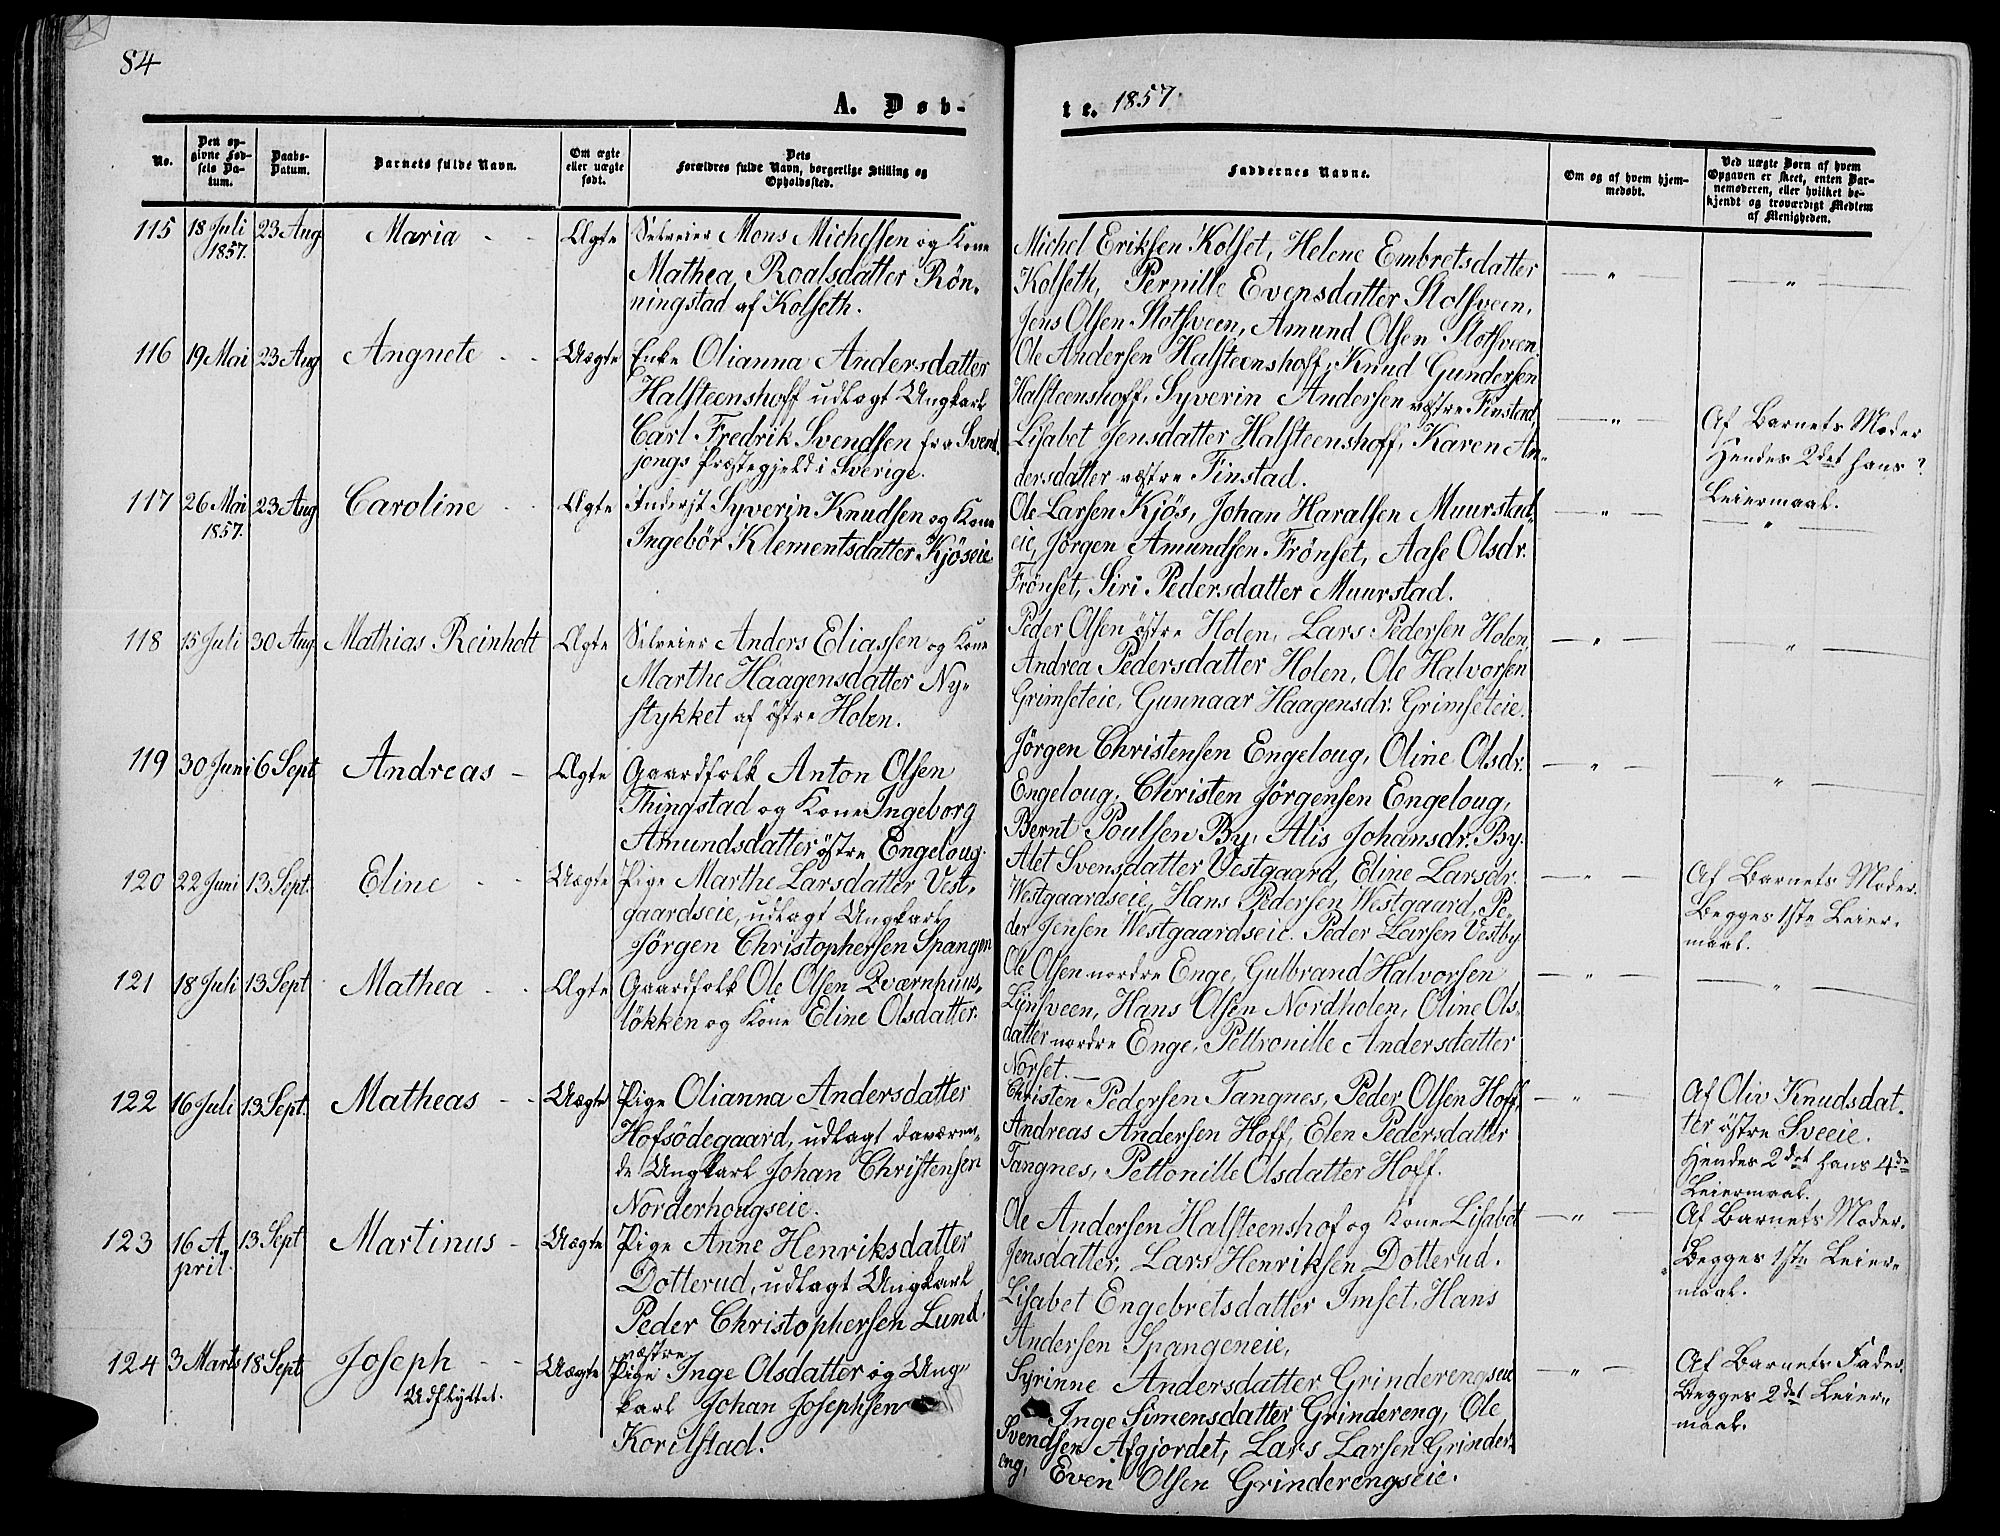 84
A. Døb-
te. 1857.
No.
Den op-
givne Fød-
sels Da-
tum.
Daabs-
Datum.
Barnets fulde Navn.
Om ægte
eller uægte
født.
Dets
Forældres fulde Navn, borgerlige Stilling og
Opholdssted.
Faddernes Navne.
Om og af hvem hjem-
medøbt.
Ved uægte Børn af hvem
Opgaven er skeet, enten Bar-
nemoderen, eller hvilket be-
kjendt og troværdigt Medlem
af Menigheden.
115 18 Juli 1857. 23 Aug Maria - - Ægte
Selveier Mons Michelsen og Kone
Mathea Roalsdatter Rön-
ningstad af Kolseth.
Michel Eriksen Kolset, Helene Embretsdatter
Kolseth, Pernille Evensdatter Slotsveen,
Jens Olsen Slotsveen, Amund Olsen Slotsveen.
116 19 Mai 23 Aug Angnete - - Uægte
Enke Olianna Andersdatter
Halsteenshoff udlagt Ungkarl
Carl Fredrik Svendsen fra Svend-
jongs Præstegjeld i Sverige.
Ole Andersen Halsteenshoff, Knud Gundersen
Halsteenshoff, Syverin Andersen vestre Finstad,
Lisabet Jensdatter Halsteenshoff, Karen An-
dersdatter vestre Finstad.
Af Barnets Moder
Hendes 2det hans ?
Leiermaal.
117 26 Mai 1857. 23 Aug Caroline - - Ægte
Inderst Syverin Knudsen og Kone
Ingebör Klementsdatter Kjöseie
Ole Larsen Kjös, Johan Haralsen Muurstad-
eie, Jörgen Amundsen Frönset, Aase Olsdr.
Frönset, Siri Pedersdatter Muurstad.
118 15 Juli 30 Aug. Mathias Reinholt Ægte
Selveier Anders Eliassen og Kone
Marthe Haagensdatter Ny-
stykket af östre Holen.
Peder Olsen östre Holen, Lars Pedersen Holen,
Andrea Pedersdatter Holen, Ole Halvorsen
Grimseteie, Gunnaar Haagensdr. Grimseteie.
119 30 Juni 6 Sept Andreas - Ægte
Gaardfolk Anton Olsen
Thingstad og Kone Ingeborg
Amundsdatter östre Engeloug.
Jörgen Christensen Engeloug, Oline Olsdr.
Engeloug, Christen Jörgensen Engeloug,
Bernt Poulsen By, Alis Johansdr. By.
120 22 Juni 13 Sept. Eline - - Uægte
Pige Marthe Larsdatter Vest-
gaardseie, udlagt Ungkarl
Jörgen Christophersen Spangen
Alet Svensdatter Vestgaard, Eline Larsdr.
Westgaardseie, Hans Pedersen Westgaard, Pe-
der Jensen Westgaardseie. Peder Larsen Vestby
Af Barnets Moder.
Begges 1ste Leier-
maal.
121 18 Juli 13 Sept Mathea - - Ægte
Gaardfolk Ole Olsen Qværnhuus-
lökken og Kone Eline Olsdatter.
Ole Olsen nordre Enge, Gulbrand Halvorsen
Lÿnsveen, Hans Olsen Nordholen, Oline Ols-
datter nordre Enge, Pettronille Andersdatter
Norset.
122 16 Juli 13 Sept. Matheas - - Uægte
Pige Olianna Andersdatter
Hofsödegaard, udlagt daværen-
de Ungkarl Johan Christensen
Norderhougseie.
Christen Pedersen Tangnes, Peder Olsen Hoff,
Andreas Andersen Hoff, Elen Pedersdatter
Tangnes, Pettonille Olsdatter Hoff.
Af Oliv Knudsdat-
ter östre Sveeie.
Hendes 2det hans 4de
Leiermaal.
123 16 A-
pril. 13 Sept Martinus - Uægte
Pige Anne Henriksdatter
Dotterud, udlagt Ungkarl
Peder Christophersen Lund,
vestre
Ole Andersen Halsteenshof og Kone Lisabet
Jensdatter, Lars Henriksen Dotterud.
Lisabet Engebretsdatter Imset, Hans
Andersen Spangeneie,
Af Barnets Moder.
Begges 1ste Leier-
maal.
124 3 Marts 18 Sept Joseph - - Uægte
Udskyttet.
Pige Inge Olsdatter og Ung-
karl Johan Josephsen
Korilstad.
Syrinne Andersdatter Grinderengseie
Inge Simensdatter Grindereng, Ole
Svendsen Afgjordet, Lars Larsen Grinder-
eng, Even Olsen Grinderengseie.
Af Barnets Fader.
Begges 2det Leier-
maal.